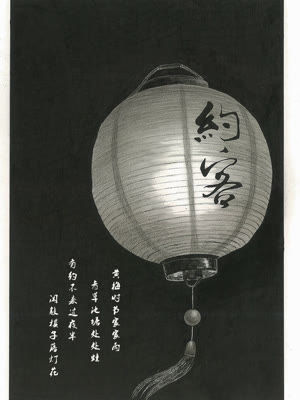 約客
黄梅时节家家雨
青草池塘处处蛙
有约不来过夜半
闲敲棋子落灯花